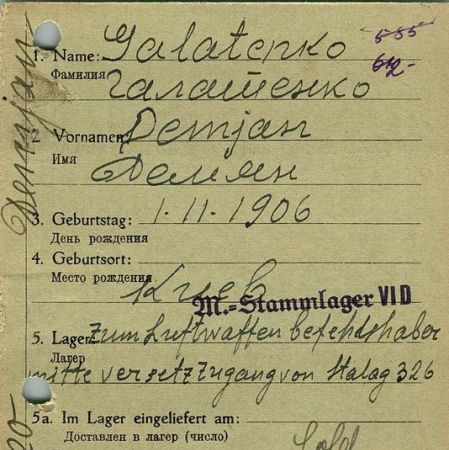 585
612-
1. Name: Galatenko
Фамилия Галатенко
2. Vorname: Demjan
Имя
Демян
3. Geburtstag: 1. 11. 1906
День рождения
4. Geburtsort:
Место рождения Киев
M.-Stammlager VI D
5. Lager: zum Luftwaffenbefehlshaber
Лагер mitte versetzt Zugang von Stalag 326
5a. Im Lager eingeliefert am:
Доставлен в лагер (число)
Demjan